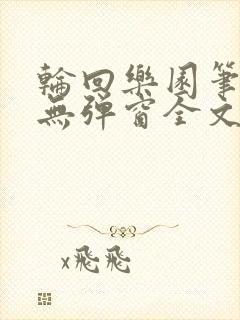 輪回樂園筆
無彈窗全文
x飛飛